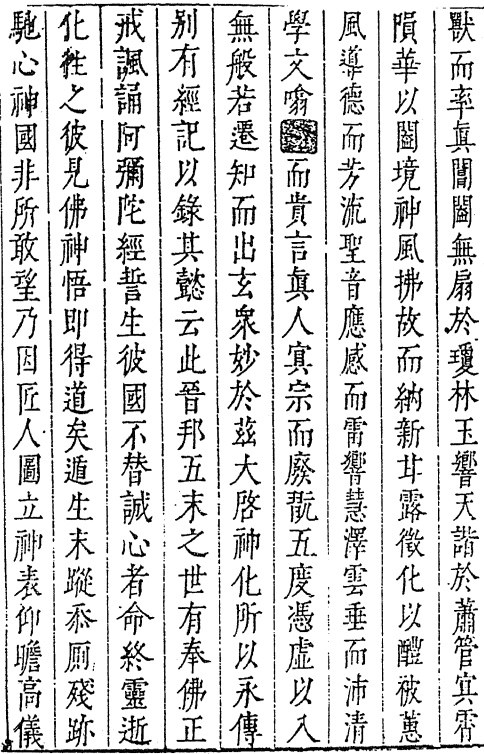 獸而率眞閶闔無扇於瓊林玉響天諧於蕭管㝠霄
隕華以闔境神風拂故而納新甘露徵化以醴被蕙
風導德而芳流聖音應感而雷響慧澤雲垂而沛清
學文噏而貴言眞人㝠宗而廢翫五度憑虛以入
無般若遷知而出玄衆妙於茲大啓神化所以永傳
别有經記以錄其懿云此晉邦五末之世有奉佛正
戒諷誦阿彌陀經誓生彼國不替誠心者命終靈逝
化徃之彼見佛神悟即得道矣遁生末蹤忝厠殘跡
馳心神國非所敢望乃因匠人圖立神表仰瞻高儀